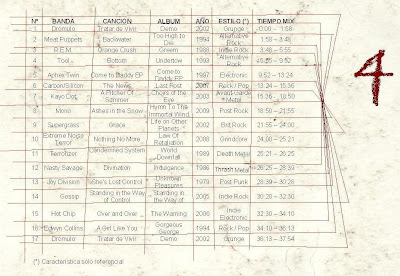 Nº BANDA CANCIÓN ALBUM AÑO ESTILO (*) TIEMPO MIX
1 Drómulo Tratar de Vivir Demo 2002 Grunge 0:00 – 1:58
2 Meat Puppets Backwater Too High to Die 1994 Alternative Rock 1:58
3 R.E.M. Orange Crush Green 1988 Indie Rock 3:48 – 5:55
4 Tool Bottom Undertow 1993 Alternative 9:52
5 Aphex Twin Come to Daddy EP Come to Daddy EP 1997 Electronic 9:52 – 13:24
6 Carbon/Silicon The News Last Post 2007 Rock / Pop 13:24 – 15:36
7 Kayo Dot A Pitcher Of Summer Choirs of the Eye 2003 Avant-Garde Metal 18:50
8 Mono Ashes in the Snow Hymn To The Immortal Wind 2009 Post Rock 18:50 – 21:55
9 Supergrass Grace Life on Other Planets 2002 Brit Rock 21:55 – 24:00
10 Extreme Noise Terror Nothing No More Law Of Retaliation 2008 Grindcore 24:00 – 25:21
11 Terrorizer Condemned System World Downfall 1989 Death Metal 25:21 – 26:25
12 Nasty Savage Divination Indulgence 1986 Thrash Metal 26:25 – 28:39
13 Joy Division She's Lost Control Unknown Pleasures 1979 Post Punk 28:39 – 30:28
14 Gossip Standing in the Way of Control Standing in the Way of 2005 Indie Rock 30:28 – 32:30
15 Hot Chip Over and Over The Warning 2006 Indie Electronic 32:30 – 34:10
16 Edwyn Collins A Girl Like You Gorgeous George 1994 Rock / Pop 34:10 – 36:13
17 Drómulo Tratar de Vivir Demo 2002 Grunge 36:13 – 37:54
(*) Característica sólo referencial
4